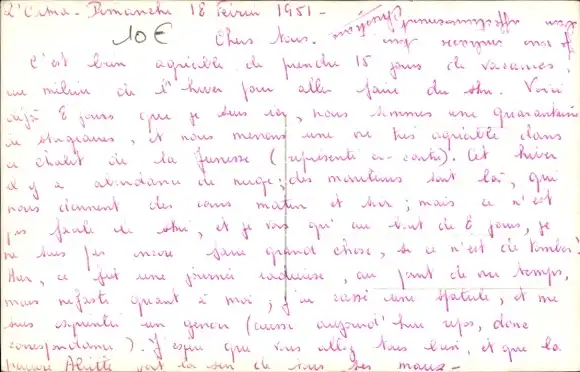 Dimanche 18 Février 1951 -
10€ Chers tous.
C'est bien agréable de prendre 15 jours de vacances,
au milieu de l'hiver pour aller faire du ski. Voici
déjà 8 jours que je suis ici, nous sommes une quarantaine
de stagiaires, et nous menons une vie très agréable dans
ce chalet de la Jeunesse (représenté ci-contre). Cet hiver
il y a abondance de neige; des moniteurs sont là, qui
nous donnent des cours matin et soir; mais ce n'est
pas facile le ski, et je vois qu'au bout de 8 jours, je
ne sais pas encore faire grand chose, si ce n'est de tomber!
Hier, ce fut une journée radieuse, au point de vue temps,
mais néfaste quant à moi; j'ai cassé une spatule, et me
suis esquinté un genou (aussi aujourd'hui repos, donc
correspondance). J'espère que vous allez tous bien, et que la
pauvre voit la fin de tous ses maux -